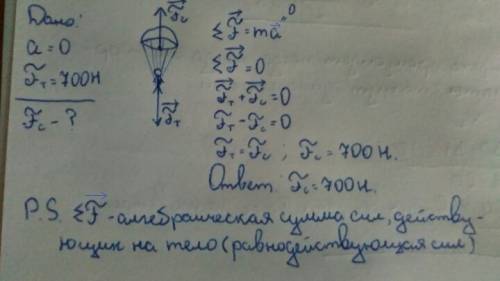 Дано:
a = 0
Fт = 700Н
Fc - ?
Fc
Fт
ΣF = ma = 0
ΣF = 0
Fт + Fc = 0
Fт - Fc = 0
Fт = Fc ; Fc = 700 Н.
Ответ: Fc = 700Н.
P.S. ΣF - алгебраическая сумма сил, действу-
ющих на тело (равнодействующая сил)